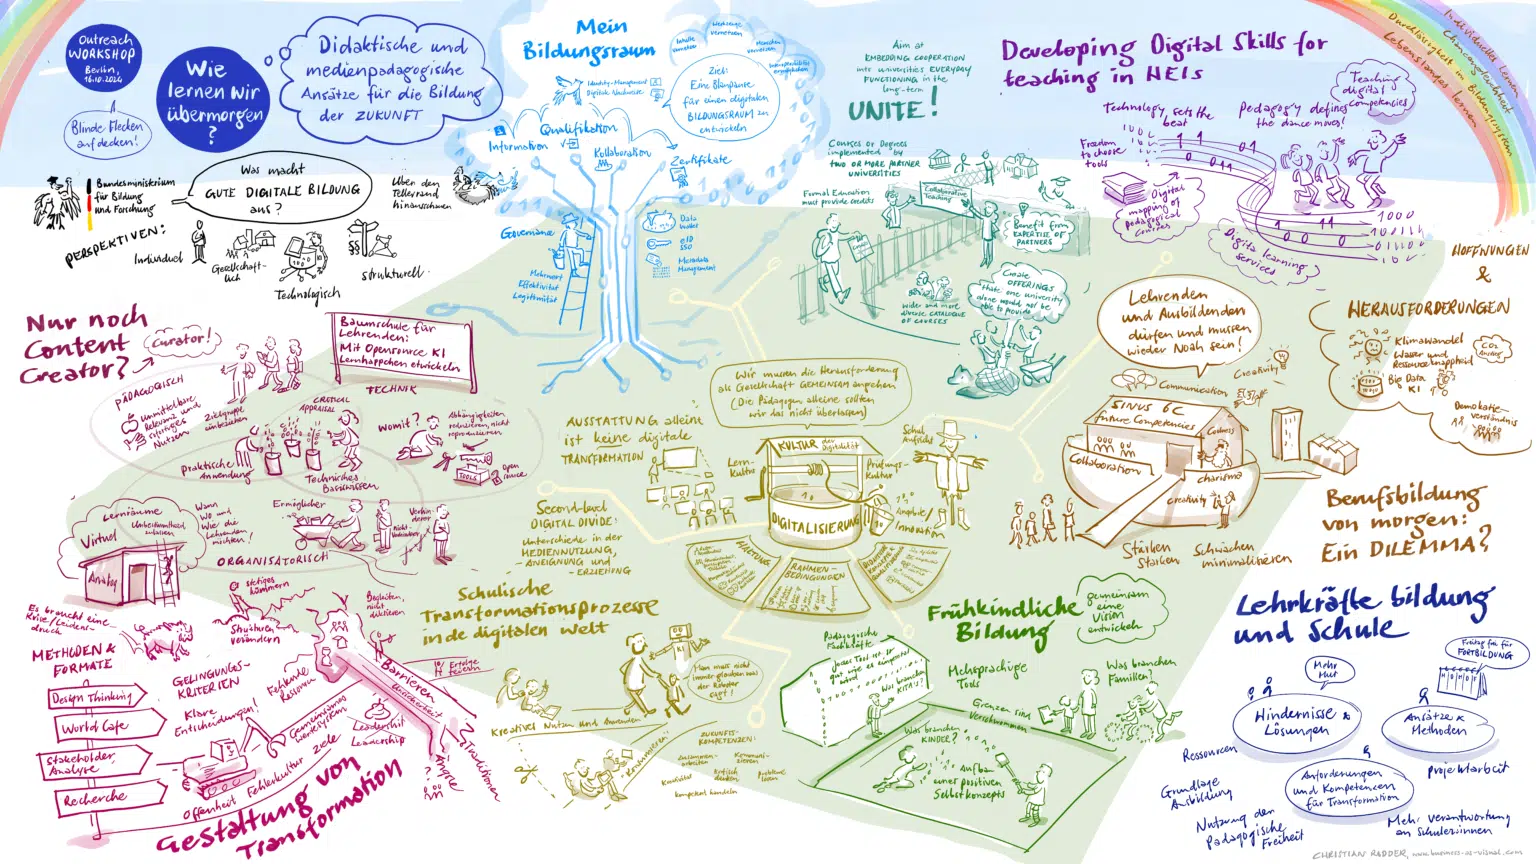 Outreach
WORKSHOP
Berlin,
16.10.2024
Blinde Flecken
aufdecken!
Wie
lernen wir
übermorgen
?
Didaktische und
medienpädagogische
Ansätze für die Bildung
der ZUKUNFT
Bundesministerium
für Bildung
und Forschung
Was macht
GUTE DIGITALE BILDUNG
aus?
Über den
Tellerrand
hinausschauen
PERSPEKTIVEN:
Individuell
Gesellschaft-
lich
Technologisch
strukturell
Mein
Bildungsraum
Werkzeuge
vernetzen
Inhalte
vernetzen
Menschen
vernetzen
Interoperabilität
ermöglichen
Identity-Management
Digitale Nachweise
Ziel:
Eine Blaupause
für einen digitalen
BILDUNGSRAUM zu
entwickeln
Qualifikation
Information
Kollaboration
Zertifikate
Governance
Data
Wallet
eID
SSO
Metadata
Management
Mehrwert
Effektivität
Legitimität
Aim at
EMBEDDING COOPERATION
into universities EVERYDAY
FUNCTIONING in the
long-term
UNITE!
Courses or Degrees
implemented by
TWO OR MORE PARTNER
UNIVERSITIES
Formal Education
must provide credits
Collaborative
Teaching
Benefit from
EXPERTISE OF
PARTNERS
Create
OFFERINGS
that one university
alone would not be
able to provide
wider and more
diverse CATALOGUE
OF COURSES
Developing Digital Skills for
teaching in HEIs
Teaching
digital
competencies
Technology sets the
beat
Pedagogy defines
the dance moves!
Freedom
to choose
tools
Digital
mapping of
pedagogical
courses
Digital learning
services
Individuelles Lernen
Chancengleichheit
Durchlässigkeit im Bildungssystem
Lebenslanges lernen
HOFFNUNGEN
&
HERAUSFORDERUNGEN
Klimawandel
Wasser und
Ressourcenknappheit
CO2
Big Data
KI
Demokratie-
verständnis
Lehrenden
und Ausbildenden
dürfen und müssen
wieder Noah sein!
Creativity
Communication
SINUS 6C
Future Competencies
Collaboration
charisma
creativity
Stärken
Stärken
Schwächen
minimalisieren
Berufsbildung
von morgen:
Ein DILEMMA?
Nur noch
Content
Creator?
Curator!
Baumschule für
Lehrenden:
Mit Opensource KI
Lernhäppchen etwickeln
PÄDAGOGISCH
TECHNIK
unmittelbare
Relevanz und
sofortiges
Nutzen
Zielgruppe
einbeziehen
CRITICAL
APPRAISAL
Womit?
Abhängigkeiten
reduzieren, nicht
reproduzieren
praktische
Anwendung
Technisches
Basiswissen
TOOLS
Open
Source
Lernräume
Virtuel
Unbestimmtheit
zulassen
Analog
Wann
Wo und
Wie die
Lehrenden
möchten!
Ermöglicher
nicht-
Verhinderer
ORGANISATORISCH
AUSSTATTUNG alleine
ist keine digitale
TRANSFORMATION
Wir müssen die Herausforderung
als Gesellschaft GEMEINSAM angehen
(Die Pädagogen alleine sollten
wir das nicht überlassen)
KULTUR der
Digitalität
Lern-
Kultur
Prüfungs-
Kultur
Schul
Aufsicht
DIGITALISIERUNG
Innovation
Second-level
DIGITAL DIVIDE:
Unterschiede in der
MEDIENNUTZUNG,
ANEIGNUNG und
- ERZIEHUNG
RAHMEN-
BEDINGUNGEN
Schulische
Transformationsprozesse
in de digitalen welt
Man muss nicht
immer glauben was
der Roboter
sagt!
KI
Kreatives Nutzen und Anwenden
Kommunizieren
ZUKUNFTS-
KOMPETENZEN:
Zusammen-
arbeiten
Kommuni-
zieren
Kreativität
Kritisch
denken
Probleme
lösen
kompetent handeln
Es braucht eine
Krise/Leidens-
druck
METHODEN &
FORMATE
Design Thinking
World Cafe
Stakeholder
Analyse
Recherche
Strukturen
verändern
Begleiten,
nicht
diktieren
GELINGUNGS-
KRITERIEN
Fehlende
Ressourcen
Klare
Entscheidungen!
Gemeinsames
Wertesystem
Ziele
Leadership
Leadership
Offenheit
Fehlerkultur
Barrieren
Unsicherheit
Erfolge
feiern
Ängste
Traditionen
Gestaltung von
Transformation
Frühkindliche
Bildung
gemeinsam
eine
Vision
entwickeln
Pädagogische
Fachkräfte
Was brauchen
KITA's?
Mehsprachige
Tools
Was brauchen
Familien?
Grenzen
verschwimmen
Was brauchen
KINDER?
Aufbau
einer positiven
Selbstkonzepts
Lehrkräfte bildung
und Schule
Mehr
Mut
Freitag frei für
FORTBILDUNG
Hindernisse &
Lösungen
Ansätze &
Methoden
Ressourcen
Anforderungen
und Kompetenzen
für Transformation
Projektarbeit
Grundlage
Ausbildung
Nutzung der
Pädagogische
Freiheit
Mehr Verantwortung
an Schüler:innen
CHRISTIAN RIDDER, www.business-as-visual.com